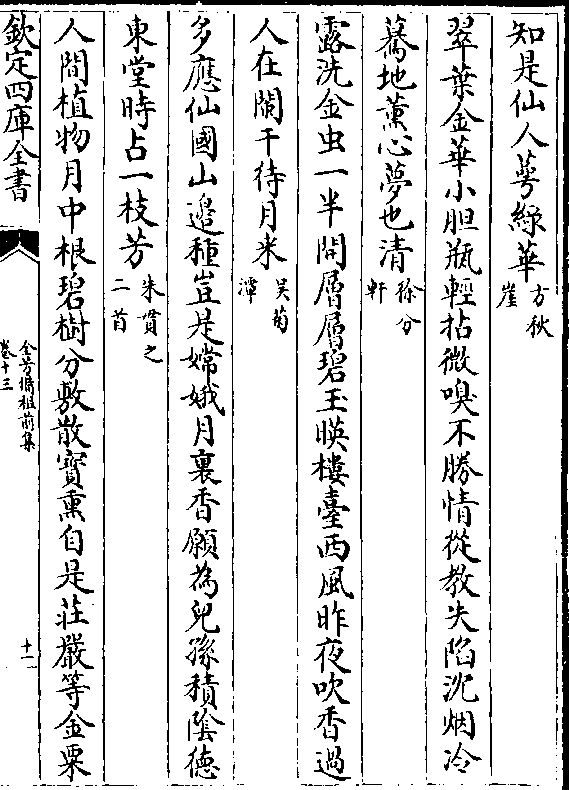 知是仙人萼緑華方秋崖
翠葉金華小胆瓶輕拈微嗅不勝情從教失陷沈烟冷
驀地薰心夢也清徐分軒
露洗金虫一半開層層碧玉暎樓臺西風昨夜吹香過
人在闌干待月来吴菊潭
多應仙國山邉種豈是嫦娥月裏香願為兒孫積陰德
東堂時占一枝芳朱貫之二首
人間植物月中根碧樹分敷散寳熏自是莊嚴等金粟
欽定四庫全書
全芳備祖前集
卷十三
十一